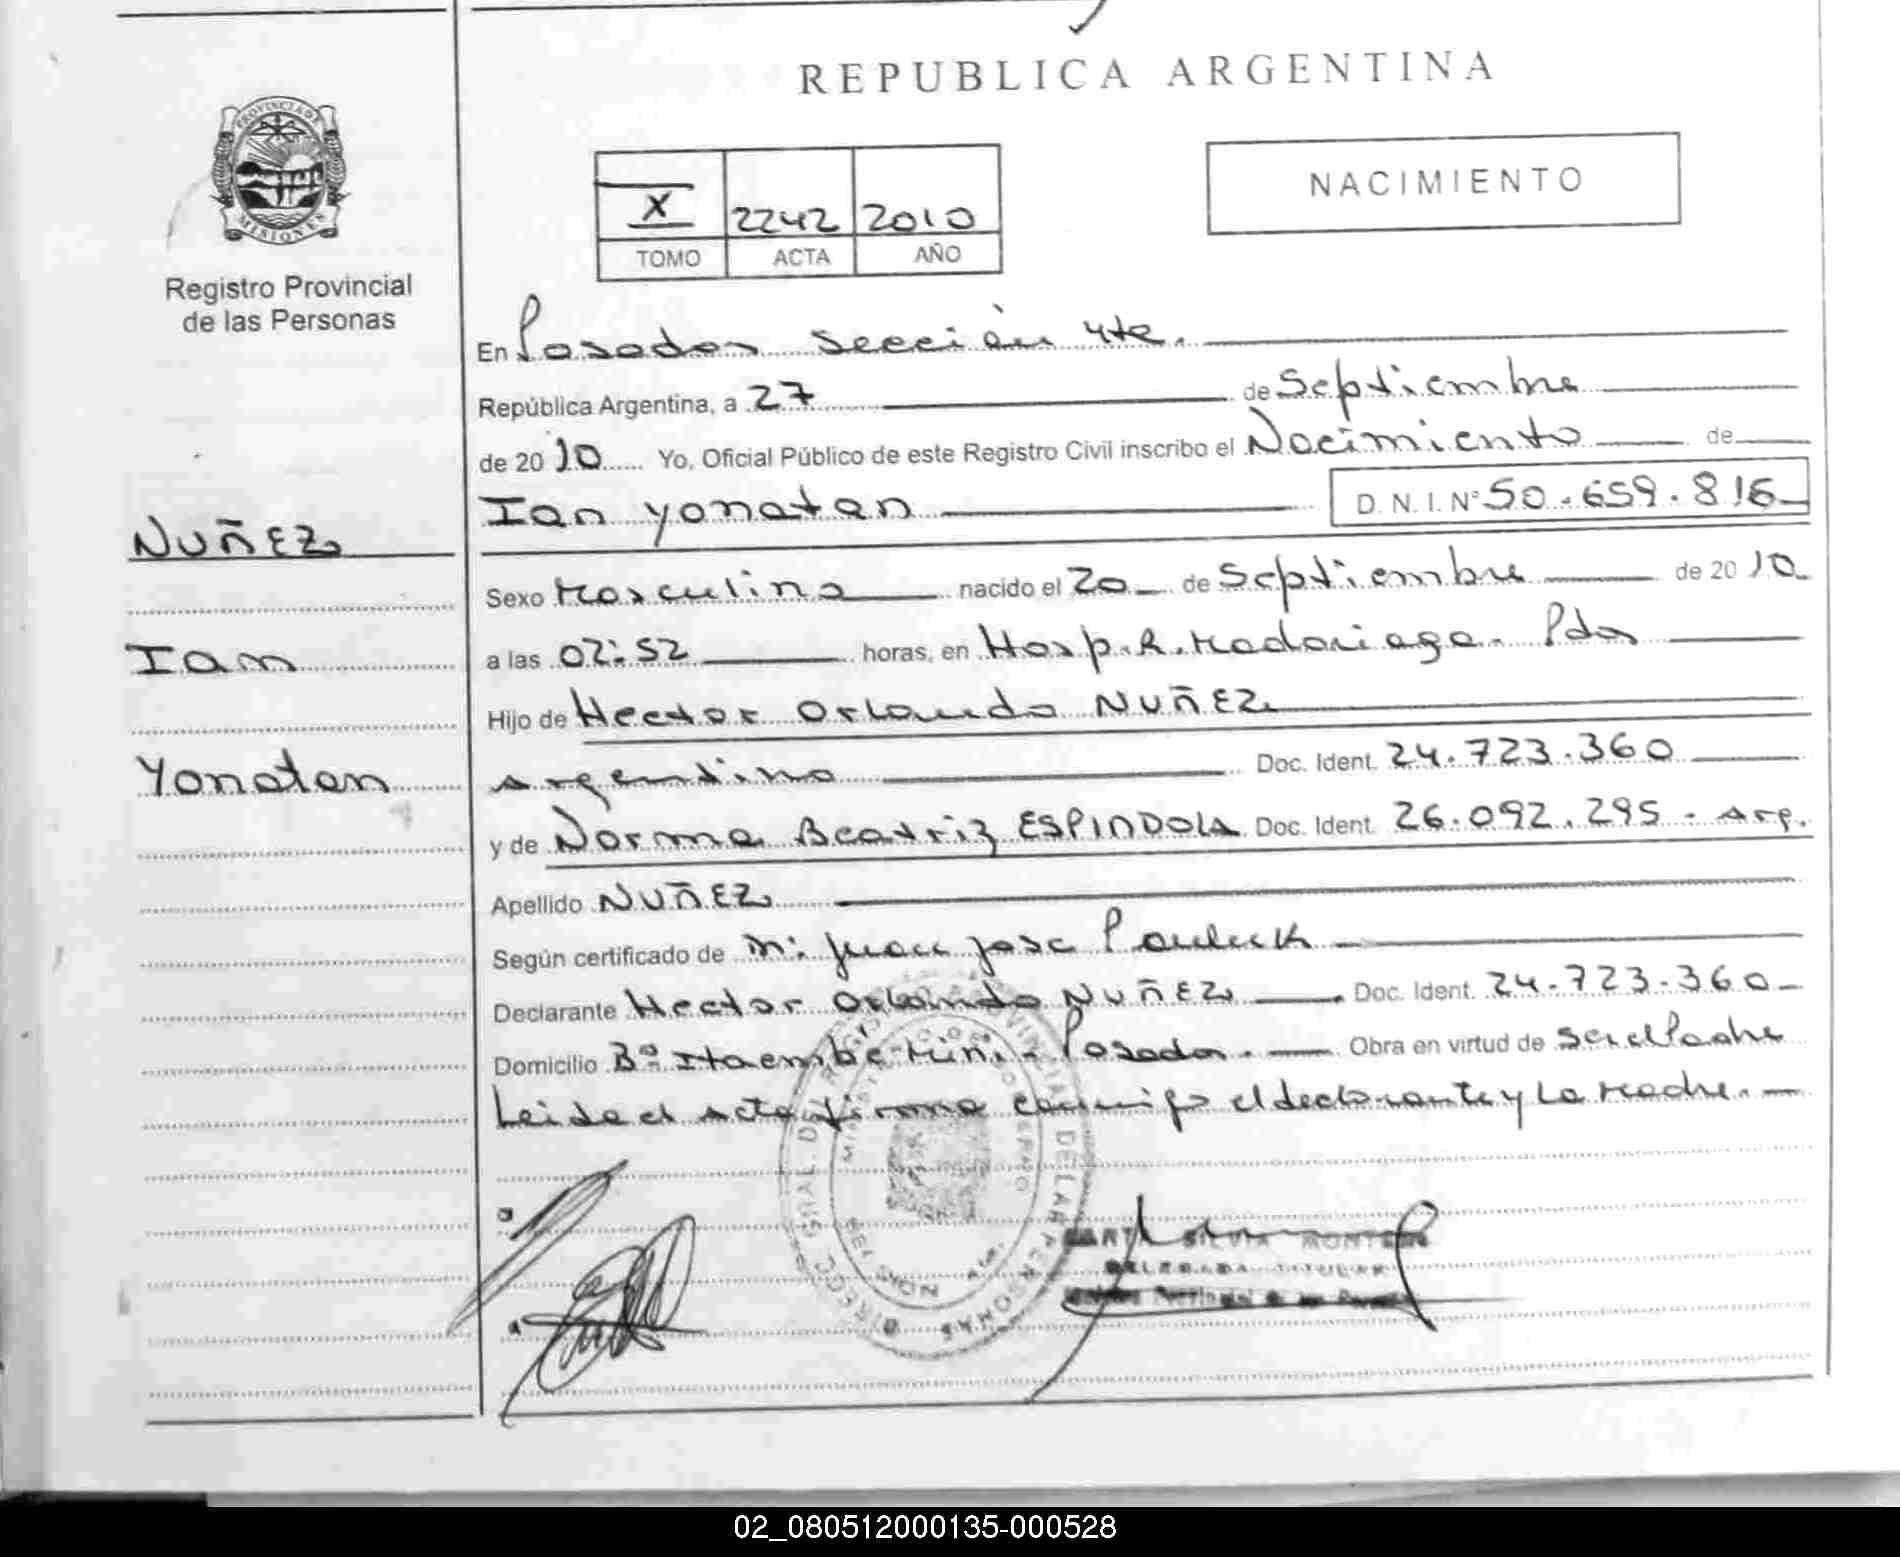 REPUBLICA ARGENTINA
PROVINCIA DE
MISIONES
Registro Provincial
de las Personas
X 2242 2010
TOMO ACTA AÑO
NACIMIENTO
NUÑEZ
Ian
Yonatan
En Posadas sección 4ta.
República Argentina, a 27 de Septiembre
de 2010 Yo, Oficial Público de este Registro Civil inscribo el Nacimiento de
Ian Yonatan D.N.I. Nº 50.659.816
Sexo Masculino nacido el 20 de Septiembre de 2010
a las 02:52 horas, en Hosp. R. Madariaga. Pdas
Hijo de Hector Orlando NUÑEZ
Argentino Doc. Ident. 24.723.360
y de Norma Beatriz ESPINDOLA Doc. Ident. 26.092.295 - Arg.
Apellido NUÑEZ
Según certificado de M: Juan Jose
Declarante Hector Orlando NUÑEZ Doc. Ident. 24.723.360
Domicilio Bº Itaembe Mini - Posadas. Obra en virtud de Ser el Padre
Leida el Acta firma conmigo el declarante y La Madre.
SILVIA
02_080512000135-000528